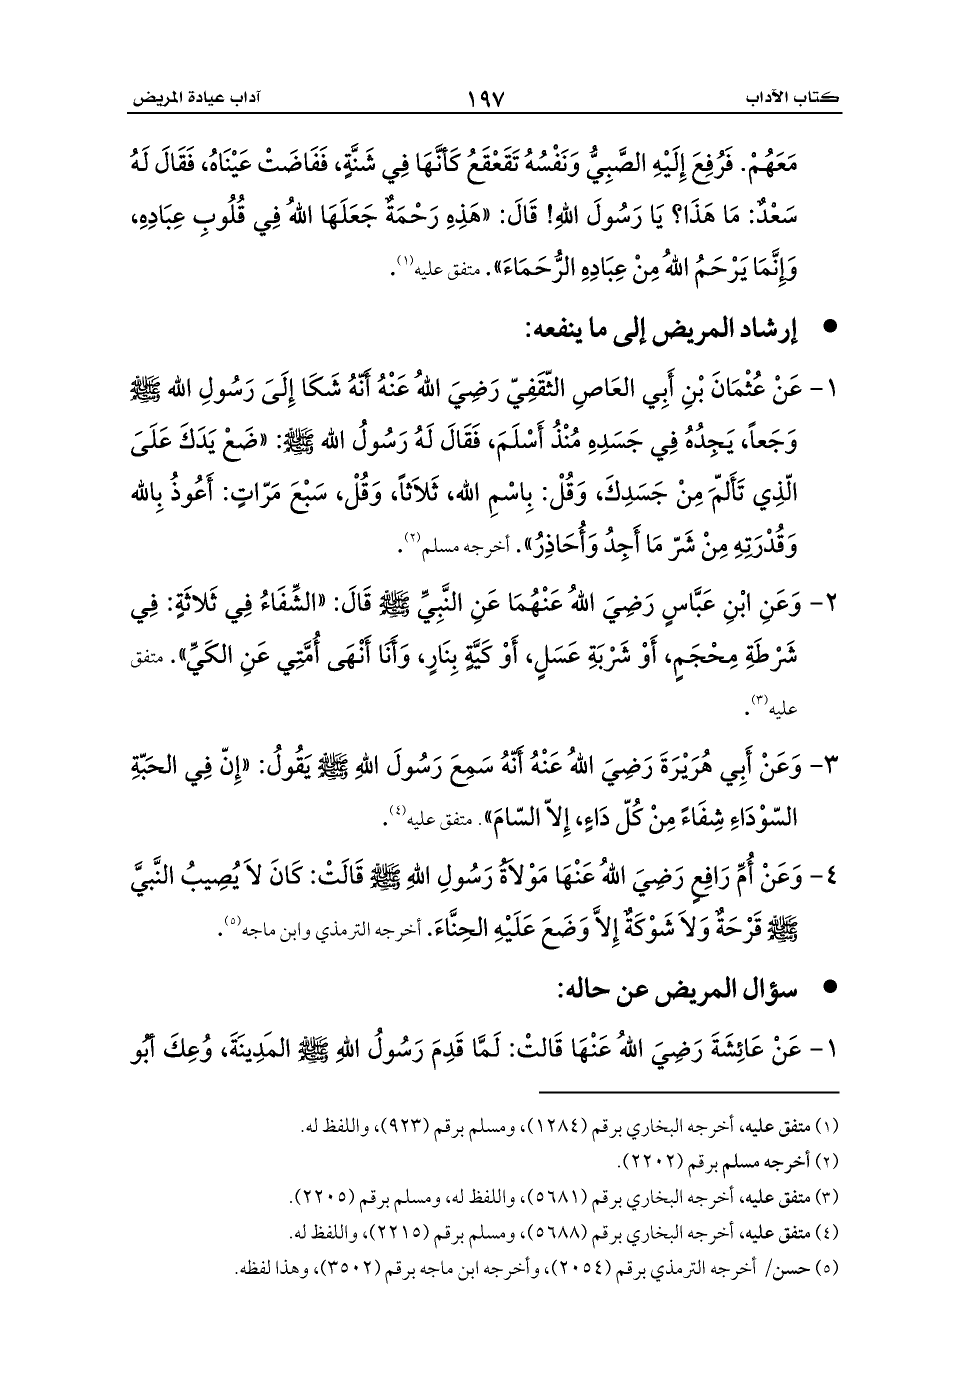 كتاب الآداب ١٩٧ آداب عيادة المريض
مَعَهُمْ. فَرُفِعَ إِلَيْهِ الصَّبِيُّ وَنَفْسُهُ تَقَعْقَعُ كَأَنَّهَا فِي شَنَّةٍ، فَفَاضَتْ عَيْنَاهُ، فَقَالَ لَهُ
سَعْدٌ: مَا هَذَا؟ يَا رَسُولَ اللهِ! قَالَ: «هَذِهِ رَحْمَةٌ جَعَلَهَا اللهُ فِي قُلُوبِ عِبَادِهِ،
وَإِنَّمَا يَرْحَمُ اللهُ مِنْ عِبَادِهِ الرُّحَمَاءَ». متفق عليه(١).
● إرشاد المريض إلى ما ينفعه:
١- عَنْ عُثْمَانَ بْنِ أَبِي العَاصِ الثّقَفِيّ رَضِيَ اللهُ عَنْهُ أَنّهُ شَكَا إِلَىَ رَسُولِ الله ﷺ
وَجَعاً، يَجِدُهُ فِي جَسَدِهِ مُنْذُ أَسْلَمَ، فَقَالَ لَهُ رَسُولُ الله ﷺ: «ضَعْ يَدَكَ عَلَىَ
الّذِي تَأَلّمَ مِنْ جَسَدِكَ، وَقُلْ: بِاسْمِ الله، ثَلاَثاً، وَقُلْ، سَبْعَ مَرّاتٍ: أَعُوذُ بِالله
وَقُدْرَتِهِ مِنْ شَرّ مَا أَجِدُ وَأُحَاذِرُ». أخرجه مسلم(٢).
٢- وَعَنِ ابْنِ عَبَّاسٍ رَضِيَ اللهُ عَنْهُمَا عَنِ النَّبِيِّ ﷺ قَالَ: «الشِّفَاءُ فِي ثَلاثَةٍ: فِي
شَرْطَةِ مِحْجَمٍ، أَوْ شَرْبَةِ عَسَلٍ، أَوْ كَيَّةٍ بِنَارٍ، وَأَنَا أَنْهَى أُمَّتِي عَنِ الكَيِّ». متفق
عليه(٣).
٣- وَعَنْ أَبِي هُرَيْرَةَ رَضِيَ اللهُ عَنْهُ أَنّهُ سَمِعَ رَسُولَ اللهِ ﷺ يَقُولُ: «إِنّ فِي الحَبّةِ
السّوْدَاءِ شِفَاءً مِنْ كُلّ دَاءٍ، إِلاّ السّامَ». متفق عليه(٤).
٤- وَعَنْ أُمِّ رَافِعٍ رَضِيَ اللهُ عَنْهَا مَوْلاَةُ رَسُولِ اللهِ ﷺ قَالَتْ: كَانَ لاَ يُصِيبُ النَّبِيَّ
ﷺ قَرْحَةٌ وَلاَ شَوْكَةٌ إِلاَّ وَضَعَ عَلَيْهِ الحِنَّاءَ. أخرجه الترمذي وابن ماجه(٥).
● سؤال المريض عن حاله:
١- عَنْ عَائِشَةَ رَضِيَ اللهُ عَنْهَا قَالتْ: لَمَّا قَدِمَ رَسُولُ اللهِ ﷺ المَدِينَةَ، وُعِكَ أَبُو
(١) متفق عليه، أخرجه البخاري برقم (١٢٨٤)، ومسلم برقم (٩٢٣)، واللفظ له.
(٢) أخرجه مسلم برقم (٢٢٠٢).
(٣) متفق عليه، أخرجه البخاري برقم (٥٦٨١)، واللفظ له، ومسلم برقم (٢٢٠٥).
(٤) متفق عليه، أخرجه البخاري برقم (٥٦٨٨)، ومسلم برقم (٢٢١٥)، واللفظ له.
(٥) حسن/ أخرجه الترمذي برقم (٢٠٥٤)، وأخرجه ابن ماجه برقم (٣٥٠٢)، وهذا لفظه.